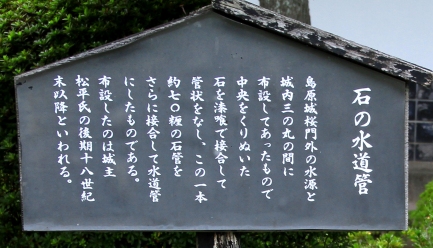 石の水道管
島原城桜門外の水源と
城内三の丸の間に
布設してあったもので
中央をくりぬいた
石を漆喰で接合して
管状をなし、この一本
約七〇糎の石管を
さらに接合して水道管
にしたものである。
布設したのは城主
松平氏の後期十八世紀
末以降といわれる。